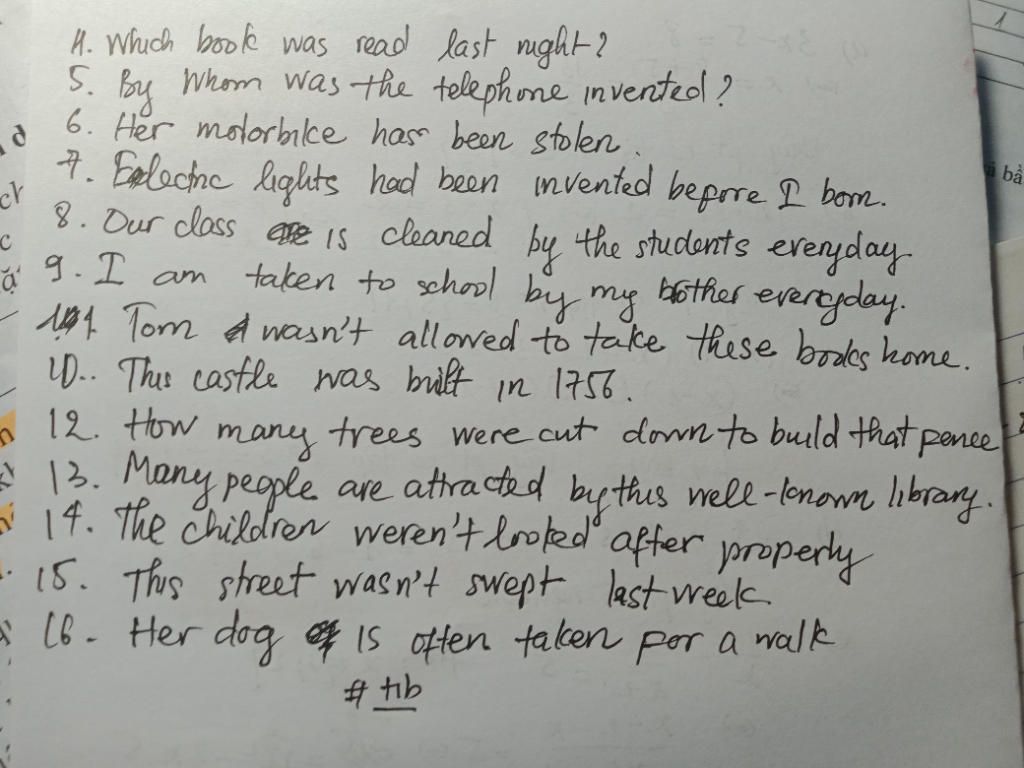 4. Which book was read last night?
5. By Whom was the telephone invented?
6. Her motorbike has been stolen.
7. Eclectric lights had been invented before I born.
8. Our class is cleaned by the students everyday
9. I am taken to school by my brother everyday.
11. Tom wasn't allowed to take these books home.
10.. This castle was built in 1756.
12. How many trees were cut down to build that fence
13. Many people are attracted by this well-known library.
14. The children weren't looked after properly
15. This street wasn't swept last week.
16- Her dog is often taken for a walk
# tib
1
bà